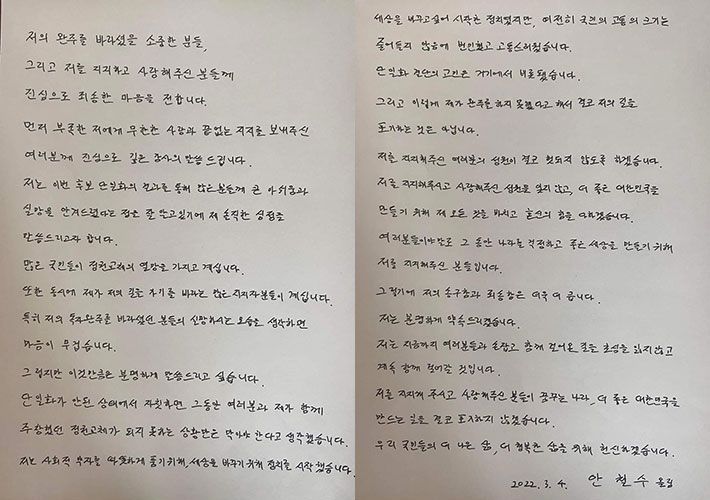 저의 완주를 바라셨을 소중한 분들,
그리고 저를 지지하고 사랑해주신 분들께
진심으로 죄송한 마음을 전합니다.
먼저 부족한 저에게 무한한 사랑과 끝없는 지지를 보내주신
여러분께 진심으로 깊은 감사의 말씀 드립니다.
저는 이번 후보 단일화의 결과를 통해 많은분들께 큰 아쉬움과
실망을 안겨드렸다는 점은 잘 알고있기에 제 솔직한 심정을
말씀드리고자 합니다.
많은 국민들이 정권교체의 열망을 가지고 계십니다.
또한 동시에 제가 저의 길을 가기를 바라는 많은 지지자분들이 계십니다.
특히 저의 독자완주를 바라셨던 분들의 실망하시는 모습을 생각하면
마음이 무겁습니다.
그렇지만 이것만큼은 분명하게 말씀드리고 싶습니다.
단일화가 안된 상태에서 자칫하면 그동안 여러분과 제가 함께
주장했던 정권교체가 되지 못하는 상황만은 막아야 한다고 생각했습니다.
저는 사회적 부자를 따뜻하게 품기위해, 세상을 바꾸기 위해 정치를 시작했습니다.
세상을 바꾸고 싶어 시작한 정치였지만, 여전히 국민의 고통의 크기는
줄어들지 않음에 번민했고 고통스러웠습니다.
단일화 결단의 고민은 거기에서 비롯됐습니다.
그리고 이렇게 제가 완주를 하지 못했다고 해서 결코 저의 길을
포기하는 것은 아닙니다.
저를 지지해주신 여러분의 성원이 결코 헛되지 않도록 하겠습니다.
저를 지지해주시고 사랑해주신 성원을 잊지 않고, 더 좋은 대한민국을
만들기 위해 제 모든 것을 바치고 혼신의 힘을 다하겠습니다.
여러분들이야말로 그 동안 나라를 걱정하고 좋은 세상을 만들기 위해
저를 지지해주신 분들입니다.
그렇기에 저의 송구함과 죄송함은 더욱 더 큽니다.
저는 분명하게 약속드리겠습니다.
저는 지금까지 여러분들과 손잡고 함께 걸어온 길을 초심을 잃지 않고
계속 함께 걸어갈 것입니다.
저를 지지해 주시고 사랑해주신 분들이 꿈꾸는 나라, 더 좋은 대한민국을
만드는 일을 결코 포기하지 않겠습니다.
우리 국민들의 더 나은 삶, 더 행복한 삶을 위해 헌신하겠습니다.
2022. 3. 4. 안철수 올림